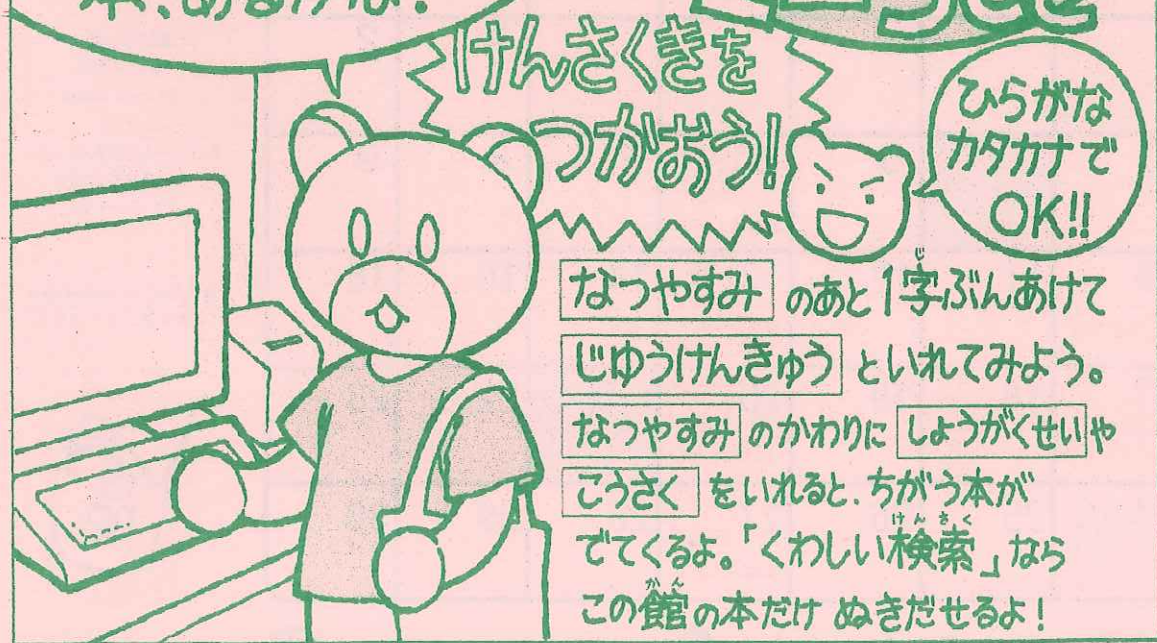 本、あるかな？
けんさくきを
つかおう!
ひらがな
カタカナで
OK!!
なつやすみ のあと1字ぶんあけて
じゆうけんきゅう といれてみよう。
なつやすみ のかわりに しょうがくせい や
こうさく をいれると、ちがう本が
でてくるよ。「くわしい検索」なら
この館の本だけ ぬきだせるよ！